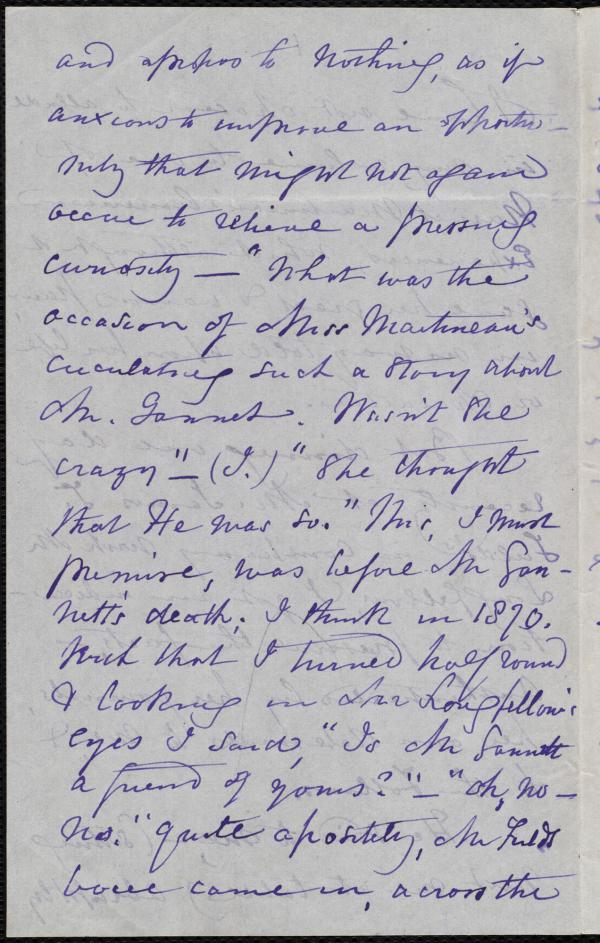 and apropos to nothing, as if
anxious to improve an opportu-
nity that might not again
occur to relieve a pressing
curiosity — "What was the
occasion of Miss Martineau's
circulating such a story about
Mr. Gannet. Wasn't she
crazy" — (I.) "She thought
that He was so." This, I must
premise, was before Mr Gan-
nett's death; I think in 1870.
With that I turned half round
& looking in Mr Longfellow's
eyes I said, "Is Mr Gannett
a friend of yours?" — "Oh, no —
no." quite apositely, Mr Fields
voice came in, across the